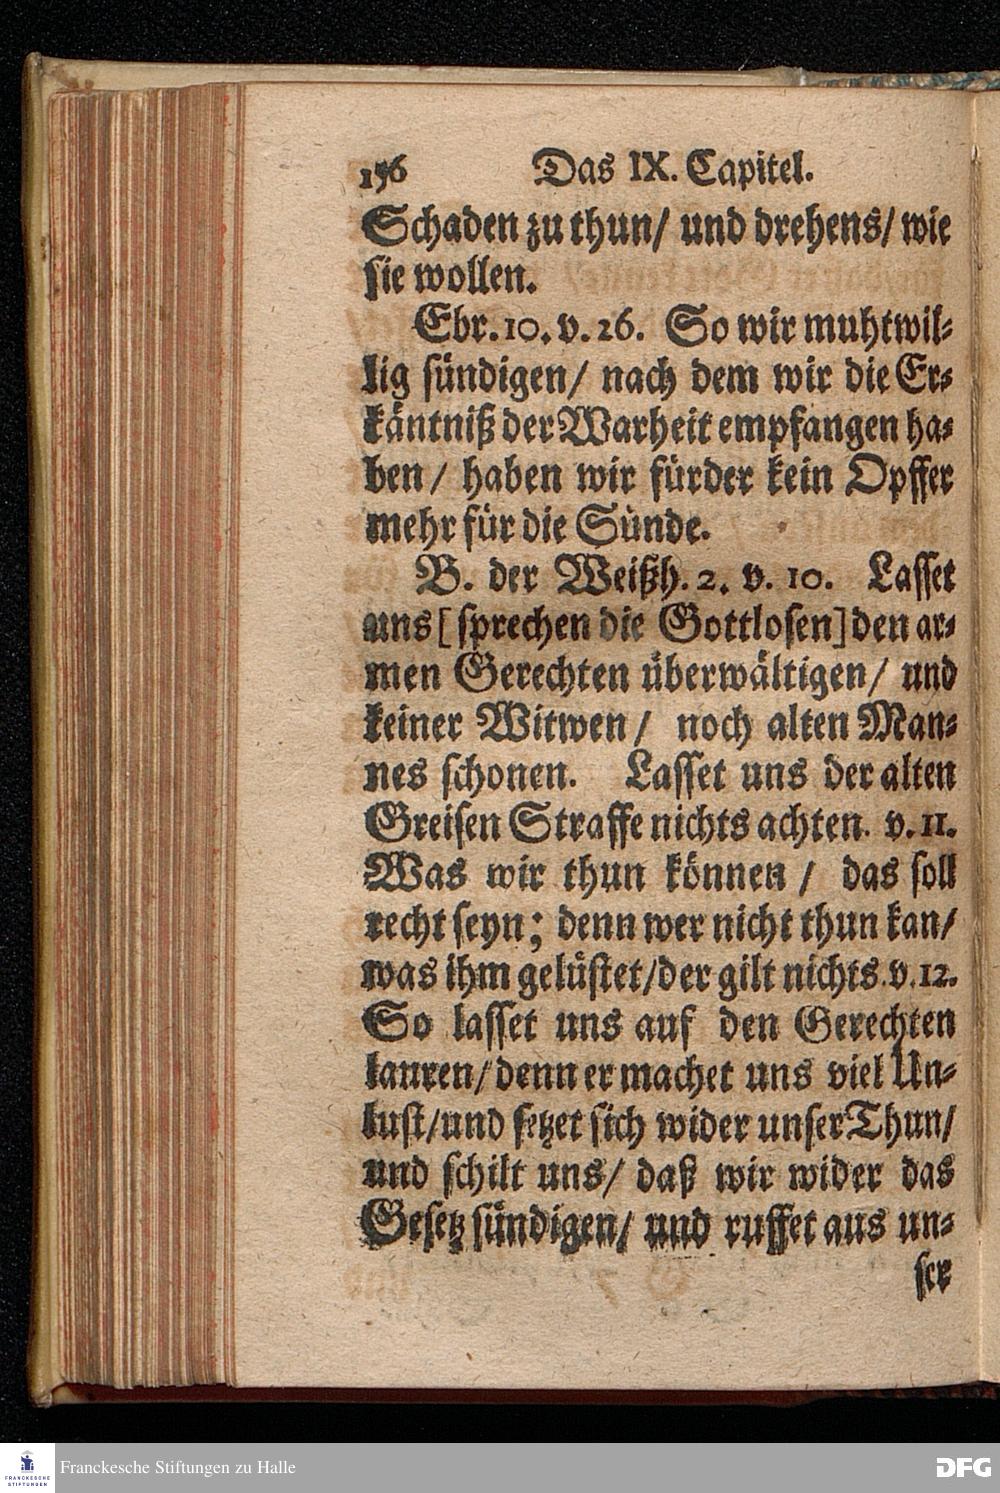 156 Das IX. Capitel.
Schaden zu thun/ und drehens/ wie
sie wollen.
Ebr. 10. v. 26. So wir muhtwil⸗
lig sündigen/ nach dem wir die Er⸗
käntniß der Warheit empfangen ha⸗
ben/ haben wir fürder kein Opffer
mehr für die Sünde.
B. der Weißh. 2. v. 10. Lasset
uns [sprechen die Gottlosen] den ar⸗
men Gerechten überwältigen/ und
keiner Witwen/ noch alten Man⸗
nes schonen. Lasset uns der alten
Greisen Straffe nichts achten. v. 11.
Was wir thun können/ das soll
recht seyn; denn wer nicht thun kan/
was ihm gelüstet/ der gilt nichts. v. 12.
So lasset uns auf den Gerechten
lauren/ denn er machet uns viel Un⸗
lust/ und setzet sich wider unser Thun/
und schilt uns/ daß wir wider das
Gesetz sündigen/ und ruffet aus un⸗
ser
FRANCKESCHE
STIFTUNGEN
Franckesche Stiftungen zu Halle
DFG